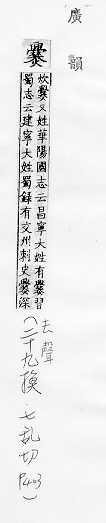 廣韻
爨
炊爨又姓華陽國志云昌寧大姓有爨習
蜀志云建寧大姓蜀錄有交州刺史爨深
去聲
(二十九換·七亂切
P403)